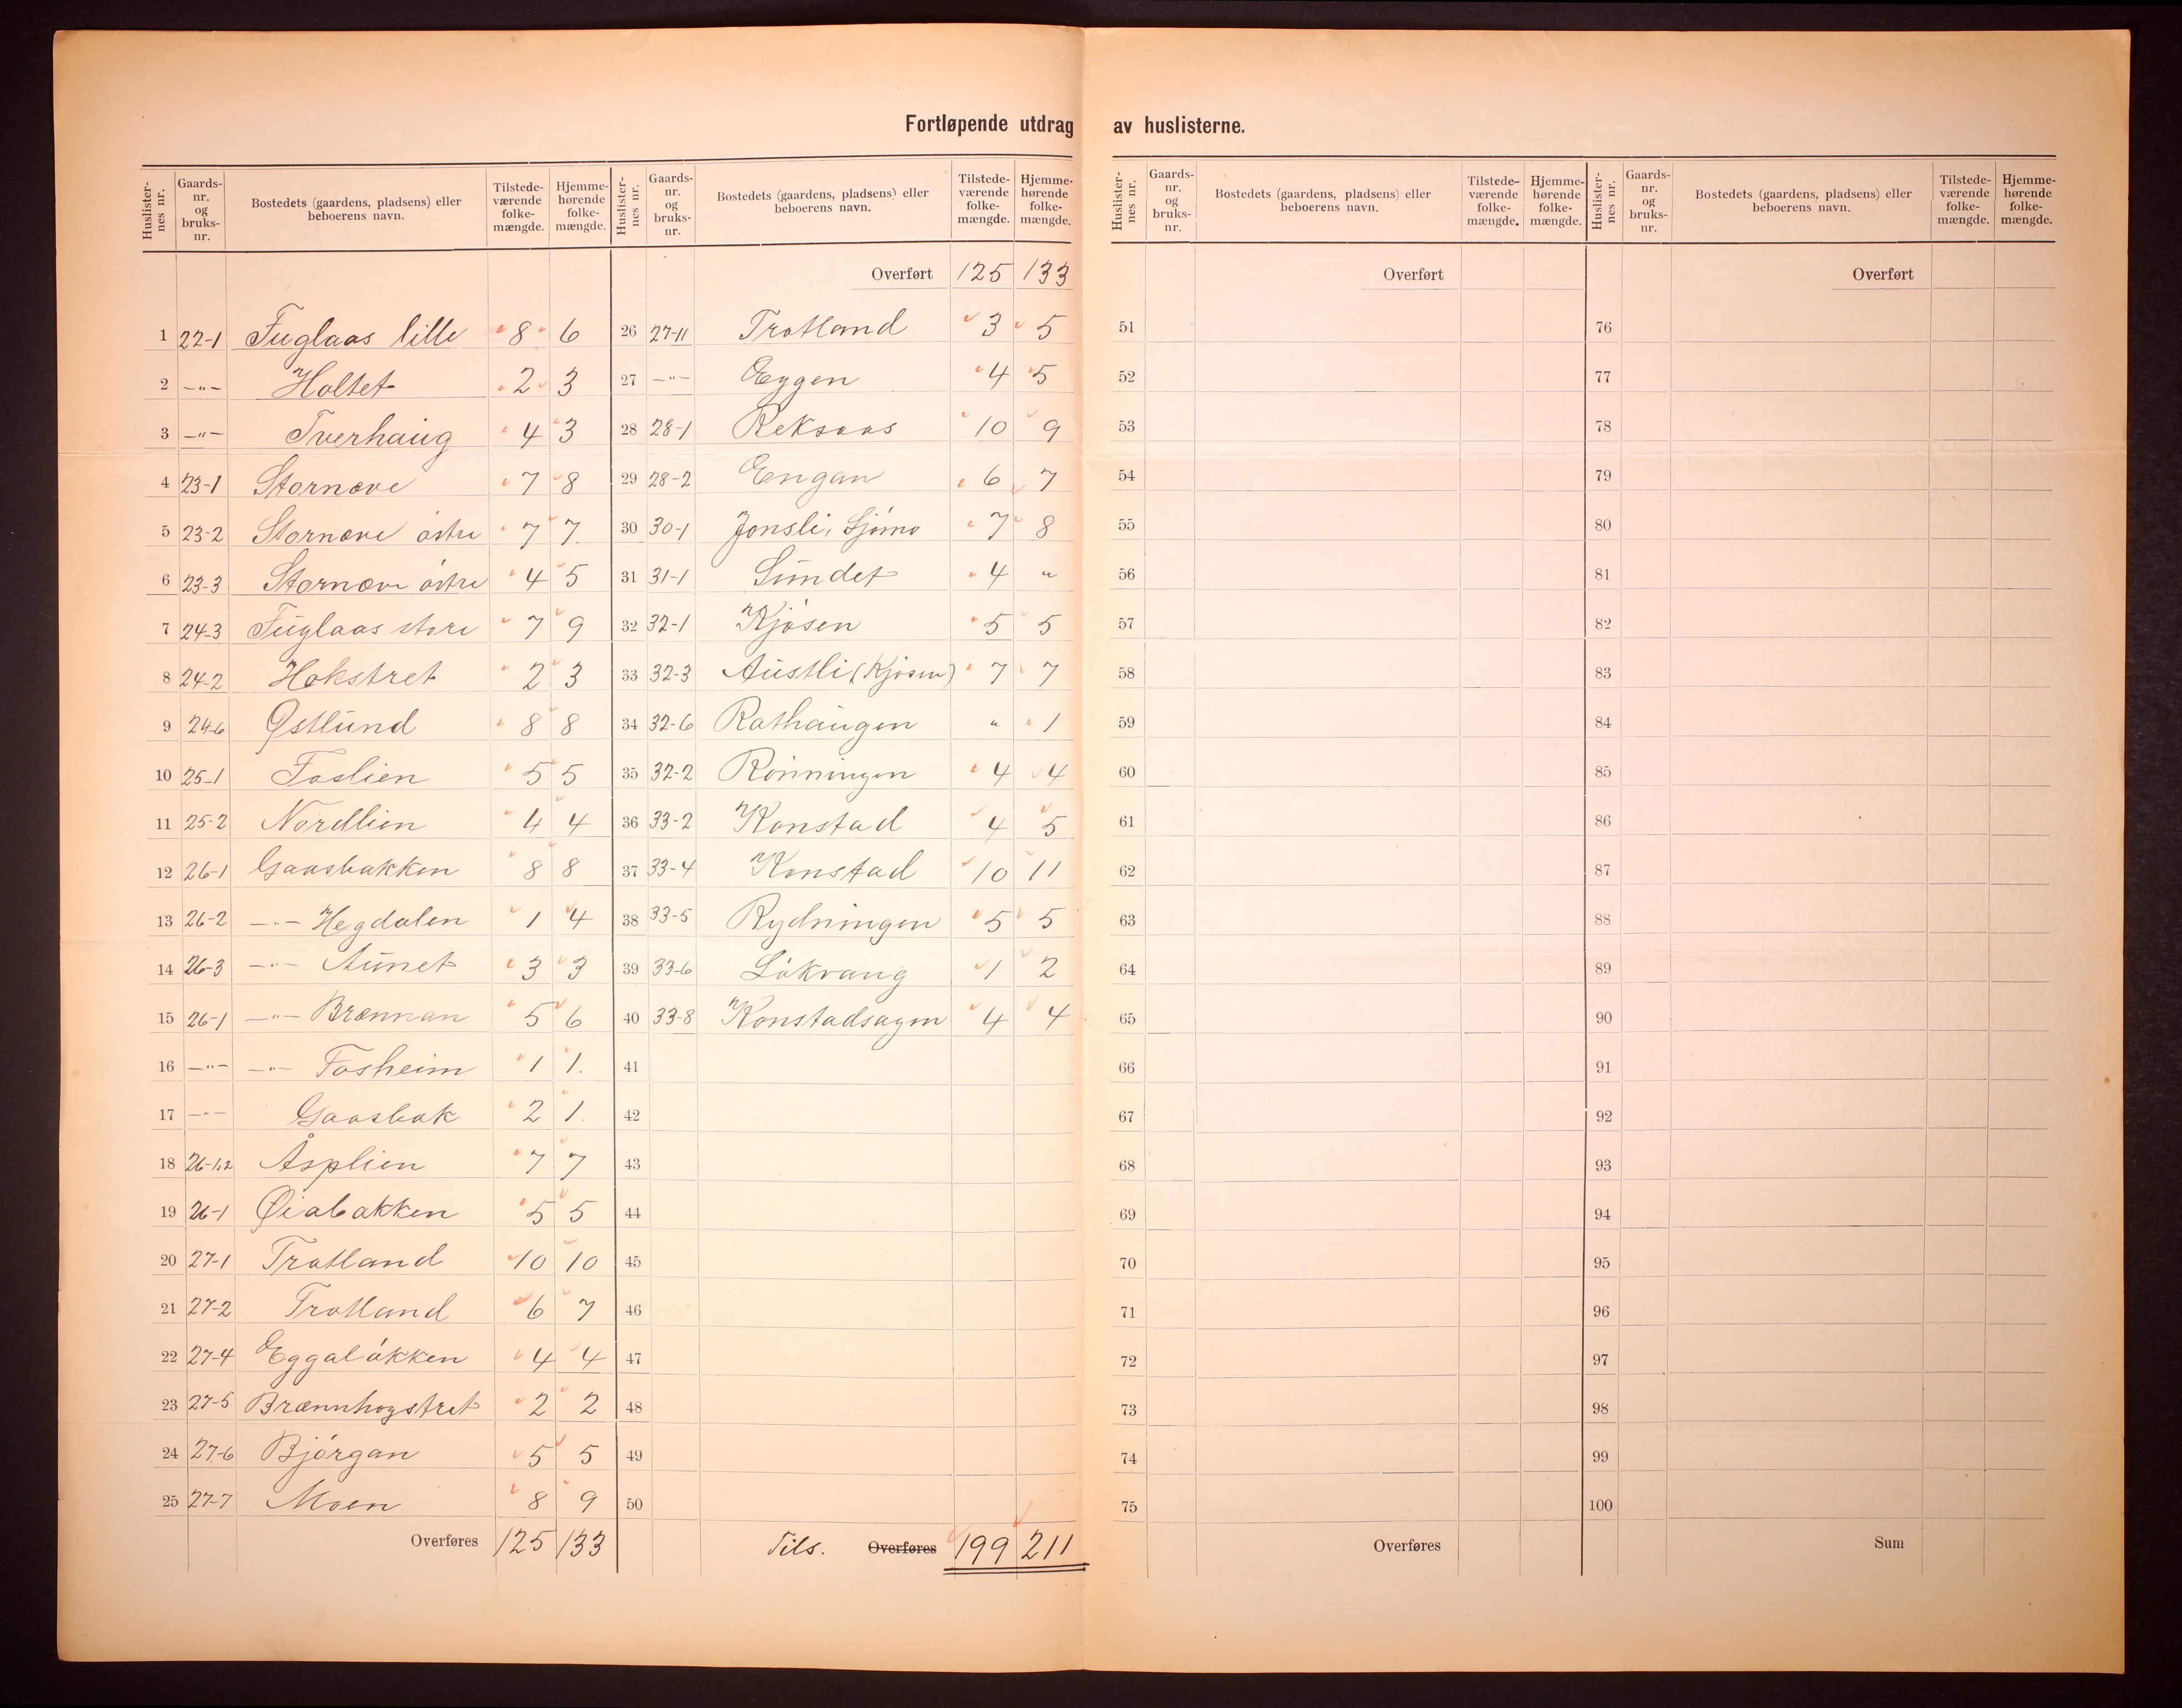 Fortløpende utdrag av huslisterne.
Huslisternes nr. | Gaards-nr. og bruks-nr. | Bostedets (gaardens, pladsens) eller beboerens navn. | Tilstede-værende folke-mængde. | Hjemme-hørende folke-mængde.
1 22-1 Fuglaas lille 8 6
2 —"— Holtet 2 3
3 —"— Tverhaug 4 3
4 23-1 Stornæve 7 8
5 23-2 Stornæve østre 7 7.
6 23-3 Stornæve østre 4 5
7 24-3 Fuglaas store 7 9
8 24-2 Hokstret 2 3
9 24-6 Østlund 8 8
10 25-1 Foslien 5 5
11 25-2 Nordlien 4 4
12 26-1 Gaasbakken 8 8
13 26-2 —"— Hegdalen 1 4
14 26-3 —"— Aunet 3 3
15 26-1 —"— Brænnan 5 6
16 —"— —"— Fosheim 1 1.
17 —"— Gaasbak 2 1.
18 26-1,2 Åsplien 7 7
19 26-1 Øiabakken 5 5
20 27-1 Trotland 10 10
21 27-2 Trotland 6 7
22 27-4 Eggaløkken 4 4
23 27-5 Brænnhogstret 2 2
24 27-6 Bjørgan 5 5
25 27-7 Moen 8 9
Overføres 125 133
Huslisternes nr. | Gaards-nr. og bruks-nr. | Bostedets (gaardens, pladsens) eller beboerens navn. | Tilstede-værende folke-mængde. | Hjemme-hørende folke-mængde.
Overført 125 133
26 27-11 Trotland 3 5
27 —"— Eggen 4 5
28 28-1 Reksaas 10 9
29 28-2 Engan 6 7
30 30-1 Jonsli, Sjømo 7 8
31 31-1 Sundet 4 "
32 32-1 Kjøsen 5 5
33 32-3 Austli (Kjøsen) 7 7
34 32-6 Rathaugen " 1
35 32-2 Rønningen 4 4
36 33-2 Konstad 4 5
37 33-4 Konstad 10 11
38 33-5 Rydningen 5 5
39 33-6 Løkvang 1 2
40 33-8 Konstadsagen 4 4
41
42
43
44
45
46
47
48
49
50
Tils. Overføres 199 211
Huslisternes nr. | Gaards-nr. og bruks-nr. | Bostedets (gaardens, pladsens) eller beboerens navn. | Tilstede-værende folke-mængde. | Hjemme-hørende folke-mængde.
Overført
51
52
53
54
55
56
57
58
59
60
61
62
63
64
65
66
67
68
69
70
71
72
73
74
75
Overføres
Huslisternes nr. | Gaards-nr. og bruks-nr. | Bostedets (gaardens, pladsens) eller beboerens navn. | Tilstede-værende folke-mængde. | Hjemme-hørende folke-mængde.
Overført
76
77
78
79
80
81
82
83
84
85
86
87
88
89
90
91
92
93
94
95
96
97
98
99
100
Sum